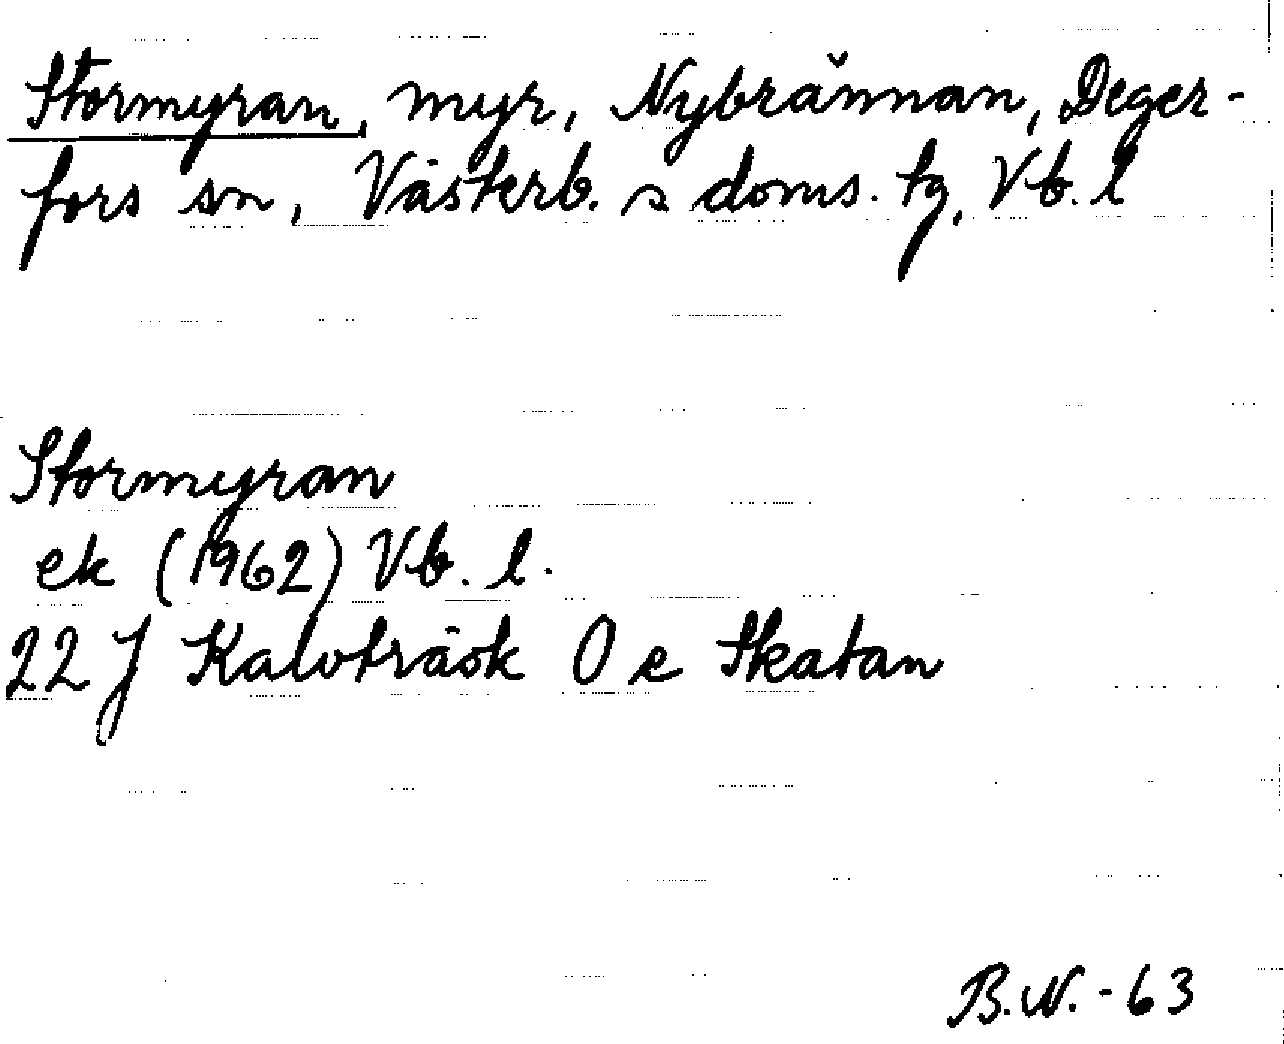 Stormyran, myr, Nybrännan, Deger-
fors sn, Västerb. s doms. tg, Vb. l
Stormyran
ek (1962) Vb. l.
22 J Kalvträsk O e Skatan
B.N. - 63